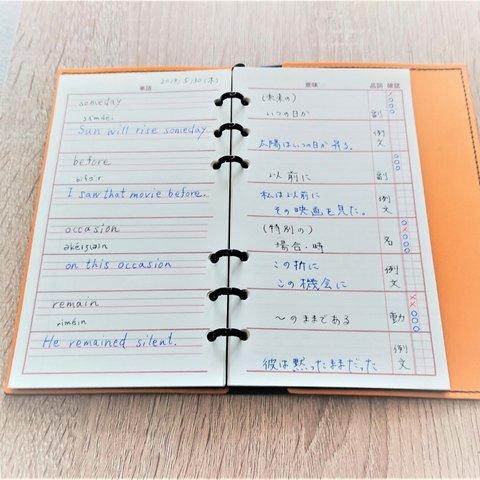 2019. 5/30 (木)
単語
someday
sʌ́mdèi
Sun will rise someday.
before
bifɔ́ːr
I saw that movie before.
occasion
əkéiʒ(ə)n
on this occasion
remain
riméin
He remained silent.
意味 品詞 確認
(未来の)
いつの日か 副
太陽はいつの日か昇る。 例文
以前に 副
私は以前に 例文
その映画を見た。
(特別の)
場合・時 名
この折に 例文
この機会に
〜のままである 動
彼は黙ったままだった 例文